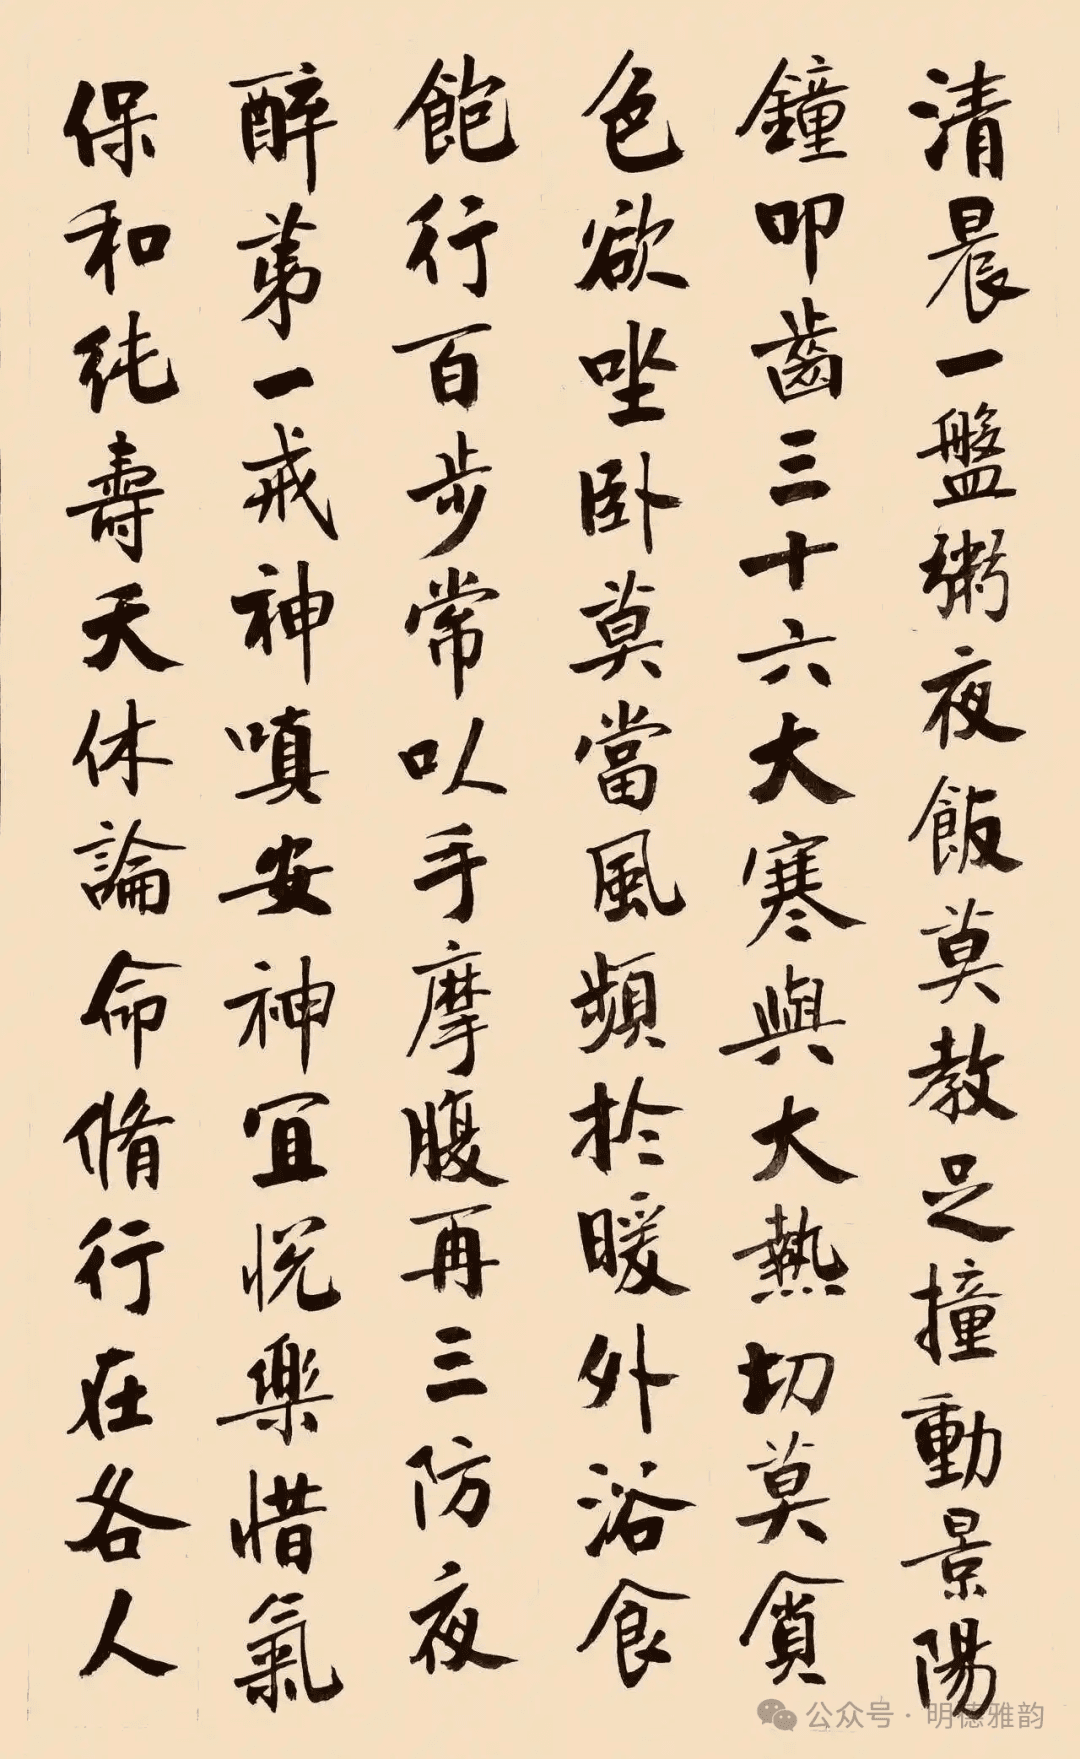 清晨一盤粥夜飯莫教足撞動景陽
鐘叩齒三十六大寒與大熱切莫貪
色欲坐卧莫當風頻於暖外浴食
飽行百步常以手摩腹再三防夜
醉第一戒神嗔安神宜悦樂惜氣
保和純壽夭休論命脩行在各人
公众号·明德雅韵